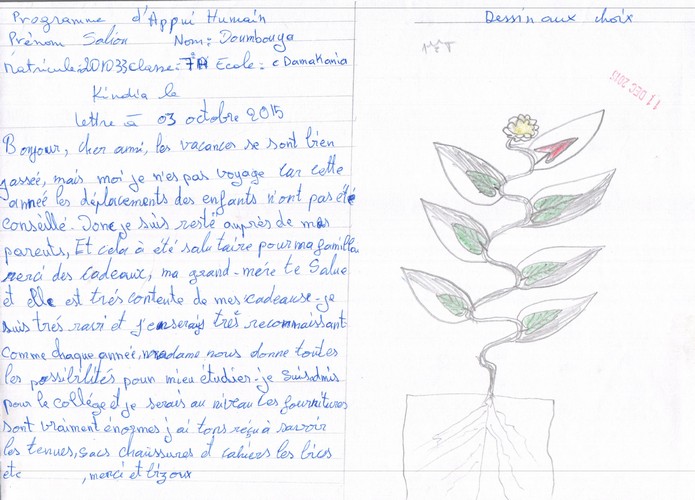 Programme d'Appui Humain
Prénom Saliou Nom: Doumbouya
Matricule: 201033 classe: 7ªA Ecole: c Damakania
Kindia le
lettre à 03 octobre 2015
Bonjour, cher ami, les vacances se sont bien
passée, mais moi je n'es pas voyage car cette
année les déplacements des enfants n'ont pas été
conseillé. Donc je suis resté auprès de mes
parents, Et cela à été salutaire pour ma famille
merci des cadeaux, ma grand-mére te Salue
et elle est trés contente de mes cadeause. je
suis trés ravi et j'en serais trés reconnaissant
comme chaque année, madame nous donne toutes
les possibilités pour mieu étudier. je suis admis
pour le collège et je serais au niveau les fournitures
sont vraiment énormes j'ai tous reçu à savoir
les tenues, sacs chaussures et cahiers les bics
etc , merci et bizoux
Dessin aux choix
11 DEC 2015